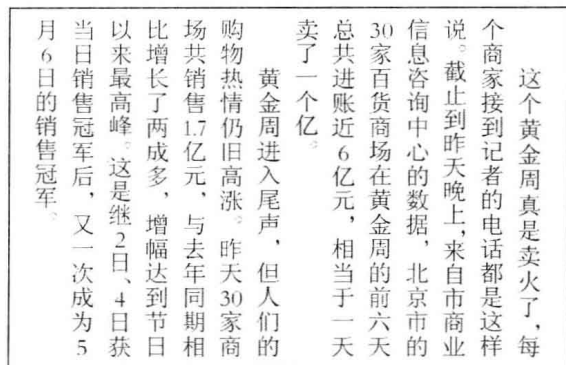 这个黄金周真是卖火了，每
个商家接到记者的电话都是这样
说。截止到昨天晚上，来自市商业
信息咨询中心的数据，北京市的
30家百货商场在黄金周的前六天
总共进账近6亿元，相当于一天
卖了一个亿。
黄金周进入尾声，但人们的
购物热情仍旧高涨。昨天30家商
场共销售1.7亿元，与去年同期相
比增长了两成多，增幅达到节日
以来最高峰。这是继2日、4日获
当日销售冠军后，又一次成为5
月6日的销售冠军。